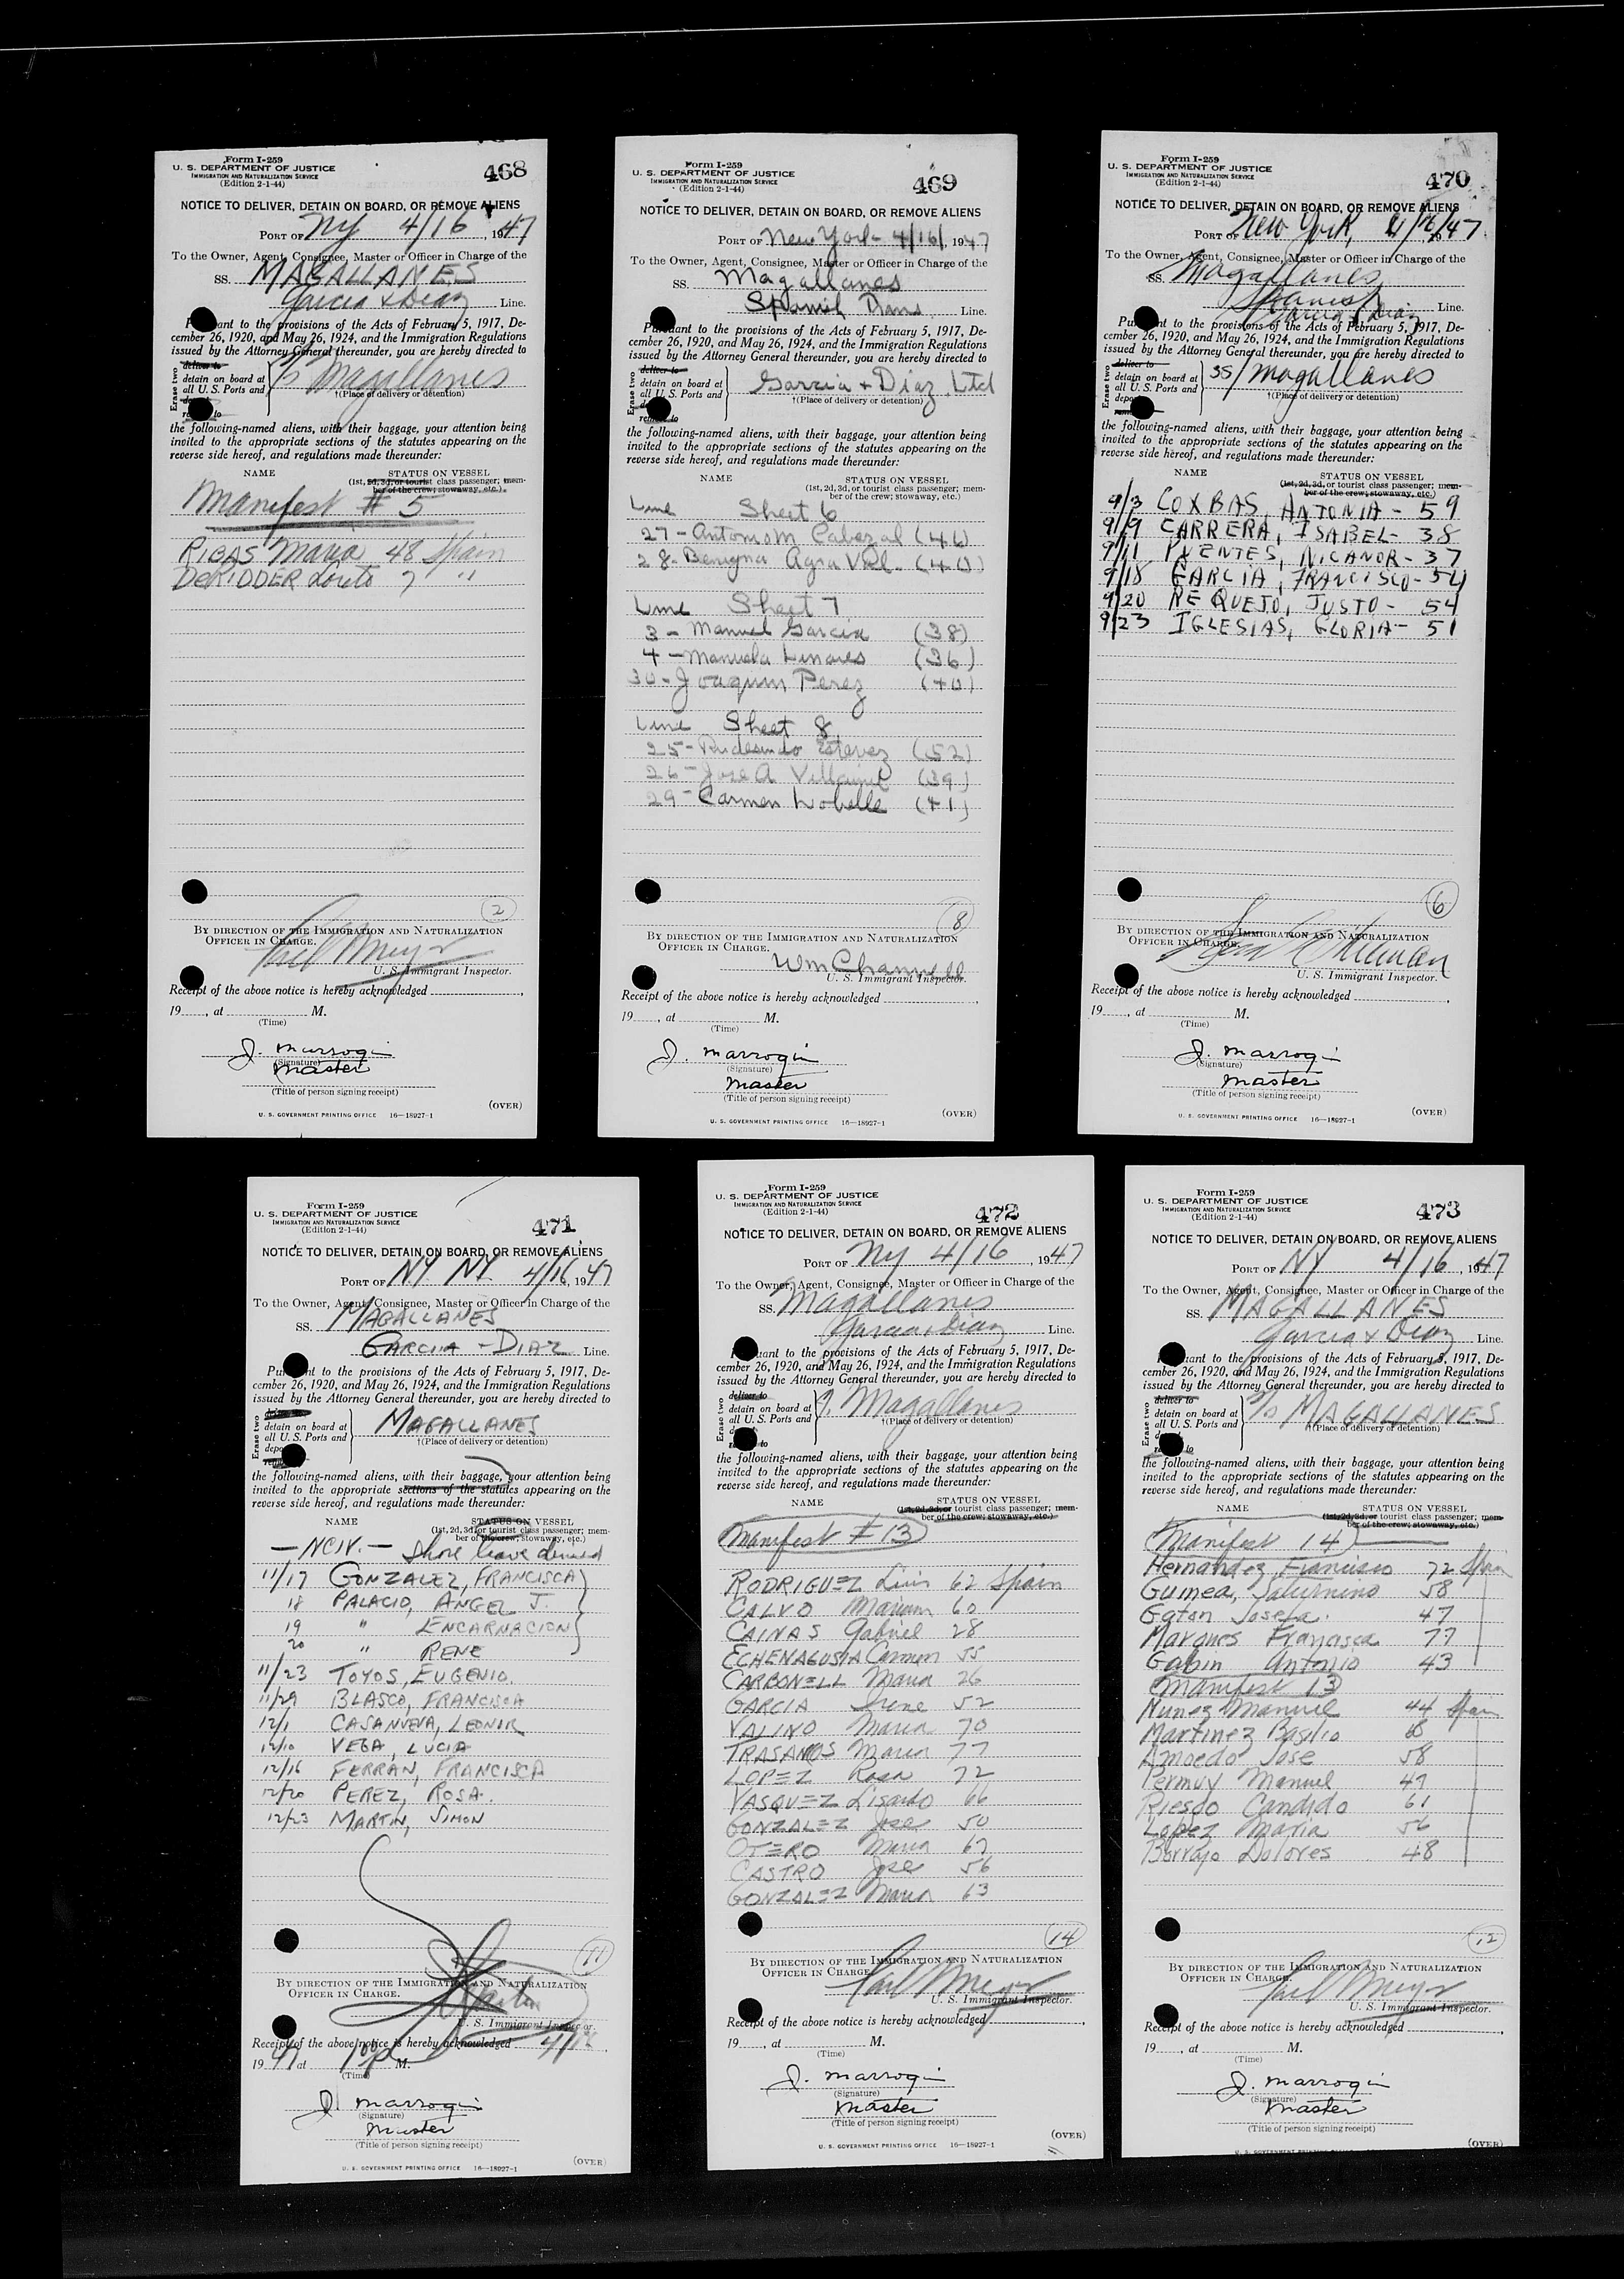 Form I-259
U. S. DEPARTMENT OF JUSTICE
IMMIGRATION AND NATURALIZATION SERVICE
(Edition 2-1-44)
468
NOTICE TO DELIVER, DETAIN ON BOARD, OR REMOVE ALIENS
PORT OF NY 4/16, 1947
To the Owner, Agent, Consignee, Master or Officer in Charge of the
SS. MAGALLANES
Garcia & Diaz Line.
Pursuant to the provisions of the Acts of February 5, 1917, De-
cember 26, 1920, and May 26, 1924, and the Immigration Regulations
issued by the Attorney General thereunder, you are hereby directed to
Erase two
deliver to
detain on board at
all U.S. Ports and
Magallanes
†(Place of delivery or detention)
the following-named aliens, with their baggage, your attention being
invited to the appropriate sections of the statutes appearing on the
reverse side hereof, and regulations made thereunder:
NAME STATUS ON VESSEL
(1st, 2d, 3d, or tourist class passenger; mem-
ber of the crew; stowaway, etc.)
Manifest # 5
RIBAS Maria 48 Spain
DeRIDDER Loreto 7 "
2
BY DIRECTION OF THE IMMIGRATION AND NATURALIZATION
OFFICER IN CHARGE.
U. S. Immigrant Inspector.
Receipt of the above notice is hereby acknowledged
19 , at M.
(Time)
J. Marrogin
(Signature)
Master
(Title of person signing receipt)
(OVER)
U. S. GOVERNMENT PRINTING OFFICE 16—18927-1
Form I-259
U. S. DEPARTMENT OF JUSTICE
IMMIGRATION AND NATURALIZATION SERVICE
(Edition 2-1-44)
469
NOTICE TO DELIVER, DETAIN ON BOARD, OR REMOVE ALIENS
PORT OF New York 4/16/, 1947
To the Owner, Agent, Consignee, Master or Officer in Charge of the
SS. Magallanes
Spanish Trans. Line.
Pursuant to the provisions of the Acts of February 5, 1917, De-
cember 26, 1920, and May 26, 1924, and the Immigration Regulations
issued by the Attorney General thereunder, you are hereby directed to
Erase two
deliver to
detain on board at
all U.S. Ports and
remove to
Garcia + Diaz Ltd
†(Place of delivery or detention)
the following-named aliens, with their baggage, your attention being
invited to the appropriate sections of the statutes appearing on the
reverse side hereof, and regulations made thereunder:
NAME STATUS ON VESSEL
(1st, 2d, 3d, or tourist class passenger; mem-
ber of the crew; stowaway, etc.)
Line Sheet 6
27 - Antonio M Cabezal
28 - Benigna Agra
Line Sheet 7
3 - Manuel Garcia (38)
4 - Manuela Linares (36)
30 - Joaquin Perez (40)
Line Sheet 8
25 - Rudesindo Estevez (52)
26 - Jose A Villamil (39)
29 - Carmen Lobelle (41)
8
BY DIRECTION OF THE IMMIGRATION AND NATURALIZATION
OFFICER IN CHARGE.
Wm Channell
U. S. Immigrant Inspector.
Receipt of the above notice is hereby acknowledged
19 , at M.
(Time)
J. Marrogin
(Signature)
Master
(Title of person signing receipt)
(OVER)
U. S. GOVERNMENT PRINTING OFFICE 16—18927-1
Form I-259
U. S. DEPARTMENT OF JUSTICE
IMMIGRATION AND NATURALIZATION SERVICE
(Edition 2-1-44)
470
NOTICE TO DELIVER, DETAIN ON BOARD, OR REMOVE ALIENS
PORT OF New York, 4/16/47
To the Owner, Agent, Consignee, Master or Officer in Charge of the
SS. Magallanes
Spanish
Garcia & Diaz Line.
Pursuant to the provisions of the Acts of February 5, 1917, De-
cember 26, 1920, and May 26, 1924, and the Immigration Regulations
issued by the Attorney General thereunder, you are hereby directed to
Erase two
deliver to
detain on board at
all U.S. Ports and
SS/ Magallanes
†(Place of delivery or detention)
the following-named aliens, with their baggage, your attention being
invited to the appropriate sections of the statutes appearing on the
reverse side hereof, and regulations made thereunder:
NAME STATUS ON VESSEL
(1st, 2d, 3d, or tourist class passenger; mem-
ber of the crew; stowaway, etc.)
9/3 COXBAS, ANTONIA - 59
9/9 CARRERA, ISABEL - 38
9/11 PUENTES, NICANOR - 37
9/18 GARCIA, FRANCISCO - 54
9/20 REQUEJO, JUSTO - 54
9/23 IGLESIAS, GLORIA - 51
6
BY DIRECTION OF THE IMMIGRATION AND NATURALIZATION
OFFICER IN CHARGE.
U. S. Immigrant Inspector.
Receipt of the above notice is hereby acknowledged
19 , at M.
(Time)
J. Marrogin
(Signature)
Master
(Title of person signing receipt)
(OVER)
U. S. GOVERNMENT PRINTING OFFICE 16—18927-1
Form I-259
U. S. DEPARTMENT OF JUSTICE
IMMIGRATION AND NATURALIZATION SERVICE
(Edition 2-1-44)
471
NOTICE TO DELIVER, DETAIN ON BOARD, OR REMOVE ALIENS
PORT OF NY NY 4/16, 1947
To the Owner, Agent, Consignee, Master or Officer in Charge of the
SS. MAGALLANES
GARCIA - DIAZ Line.
Pursuant to the provisions of the Acts of February 5, 1917, De-
cember 26, 1920, and May 26, 1924, and the Immigration Regulations
issued by the Attorney General thereunder, you are hereby directed to
Erase two
detain on board at
all U.S. Ports and
MAGALLANES
†(Place of delivery or detention)
the following-named aliens, with their baggage, your attention being
invited to the appropriate sections of the statutes appearing on the
reverse side hereof, and regulations made thereunder:
NAME STATUS ON VESSEL
(1st, 2d, 3d, or tourist class passenger; mem-
ber of the crew; stowaway, etc.)
— NCIV. — Shore leave denied
11/17 GONZALEZ, FRANCISCA
18 PALACIO, ANGEL J.
19 " ENCARNACION
20 " RENE
11/23 TOYOS, EUGENIO.
11/29 BLASCO, FRANCISCA
12/1 CASANUEVA, LEONIR
12/10 VEGA, LUCIA
12/16 FERRAN, FRANCISCA
12/20 PEREZ, ROSA.
12/23 MARTIN, SIMON
11
BY DIRECTION OF THE IMMIGRATION AND NATURALIZATION
OFFICER IN CHARGE.
U. S. Immigrant Inspector.
Receipt of the above notice is hereby acknowledged 4/16,
1947 at 1 P M.
(Time)
J. Marrogin
(Signature)
Master
(Title of person signing receipt)
(OVER)
U. S. GOVERNMENT PRINTING OFFICE 16—18927-1
Form I-259
U. S. DEPARTMENT OF JUSTICE
IMMIGRATION AND NATURALIZATION SERVICE
(Edition 2-1-44)
472
NOTICE TO DELIVER, DETAIN ON BOARD, OR REMOVE ALIENS
PORT OF NY 4/16 1947
To the Owner, Agent, Consignee, Master or Officer in Charge of the
SS. Magallanes
Garcia & Diaz Line.
Pursuant to the provisions of the Acts of February 5, 1917, De-
cember 26, 1920, and May 26, 1924, and the Immigration Regulations
issued by the Attorney General thereunder, you are hereby directed to
Erase two
deliver to
detain on board at
all U.S. Ports and
Magallanes
†(Place of delivery or detention)
the following-named aliens, with their baggage, your attention being
invited to the appropriate sections of the statutes appearing on the
reverse side hereof, and regulations made thereunder:
NAME STATUS ON VESSEL
(1st, 2d, 3d, or tourist class passenger; mem-
ber of the crew; stowaway, etc.)
Manifest # 13
RODRIGUEZ Luis 62 Spain
CALVO Marium 60
CAINAS Gabriel 28
ECHENAGUSIA Carmen 55
CARBONELL Maria 26
GARCIA Irene 52
VALINO Maria 70
TRASANCOS Maria 77
LOPEZ Rosa 72
VASQUEZ Lisardo 66
GONZALEZ Jose 50
OTERO Maria 67
CASTRO Jose 56
GONZALEZ Maria 63
14
BY DIRECTION OF THE IMMIGRATION AND NATURALIZATION
OFFICER IN CHARGE.
U. S. Immigrant Inspector.
Receipt of the above notice is hereby acknowledged
19 , at M.
(Time)
J. Marrogin
(Signature)
Master
(Title of person signing receipt)
(OVER)
U. S. GOVERNMENT PRINTING OFFICE 16—18927-1
Form I-259
U. S. DEPARTMENT OF JUSTICE
IMMIGRATION AND NATURALIZATION SERVICE
(Edition 2-1-44)
473
NOTICE TO DELIVER, DETAIN ON BOARD, OR REMOVE ALIENS
PORT OF NY 4/16, 1947
To the Owner, Agent, Consignee, Master or Officer in Charge of the
SS. MAGALLANES
Garcia & Diaz Line.
Pursuant to the provisions of the Acts of February 5, 1917, De-
cember 26, 1920, and May 26, 1924, and the Immigration Regulations
issued by the Attorney General thereunder, you are hereby directed to
Erase two
deliver to
detain on board at
all U.S. Ports and
MAGALLANES
†(Place of delivery or detention)
the following-named aliens, with their baggage, your attention being
invited to the appropriate sections of the statutes appearing on the
reverse side hereof, and regulations made thereunder:
NAME STATUS ON VESSEL
(1st, 2d, 3d, or tourist class passenger; mem-
ber of the crew; stowaway, etc.)
Manifest 14
Hernandez Francisco 72 Spain
Gumea, Saturnino 58
Gaton Josefa. 47
Marques Francisca 77
Gabin Antonio 43
Manifest 13
Nunez Manuel 44 Spain
Martinez Basilio
Amoedo Jose 58
Permuy Manuel 47
Riesgo Candido 61
Lopez Maria 56
Borrajo Dolores 48
12
BY DIRECTION OF THE IMMIGRATION AND NATURALIZATION
OFFICER IN CHARGE.
U. S. Immigrant Inspector.
Receipt of the above notice is hereby acknowledged
19 , at M.
(Time)
J. Marrogin
(Signature)
Master
(Title of person signing receipt)
(OVER)